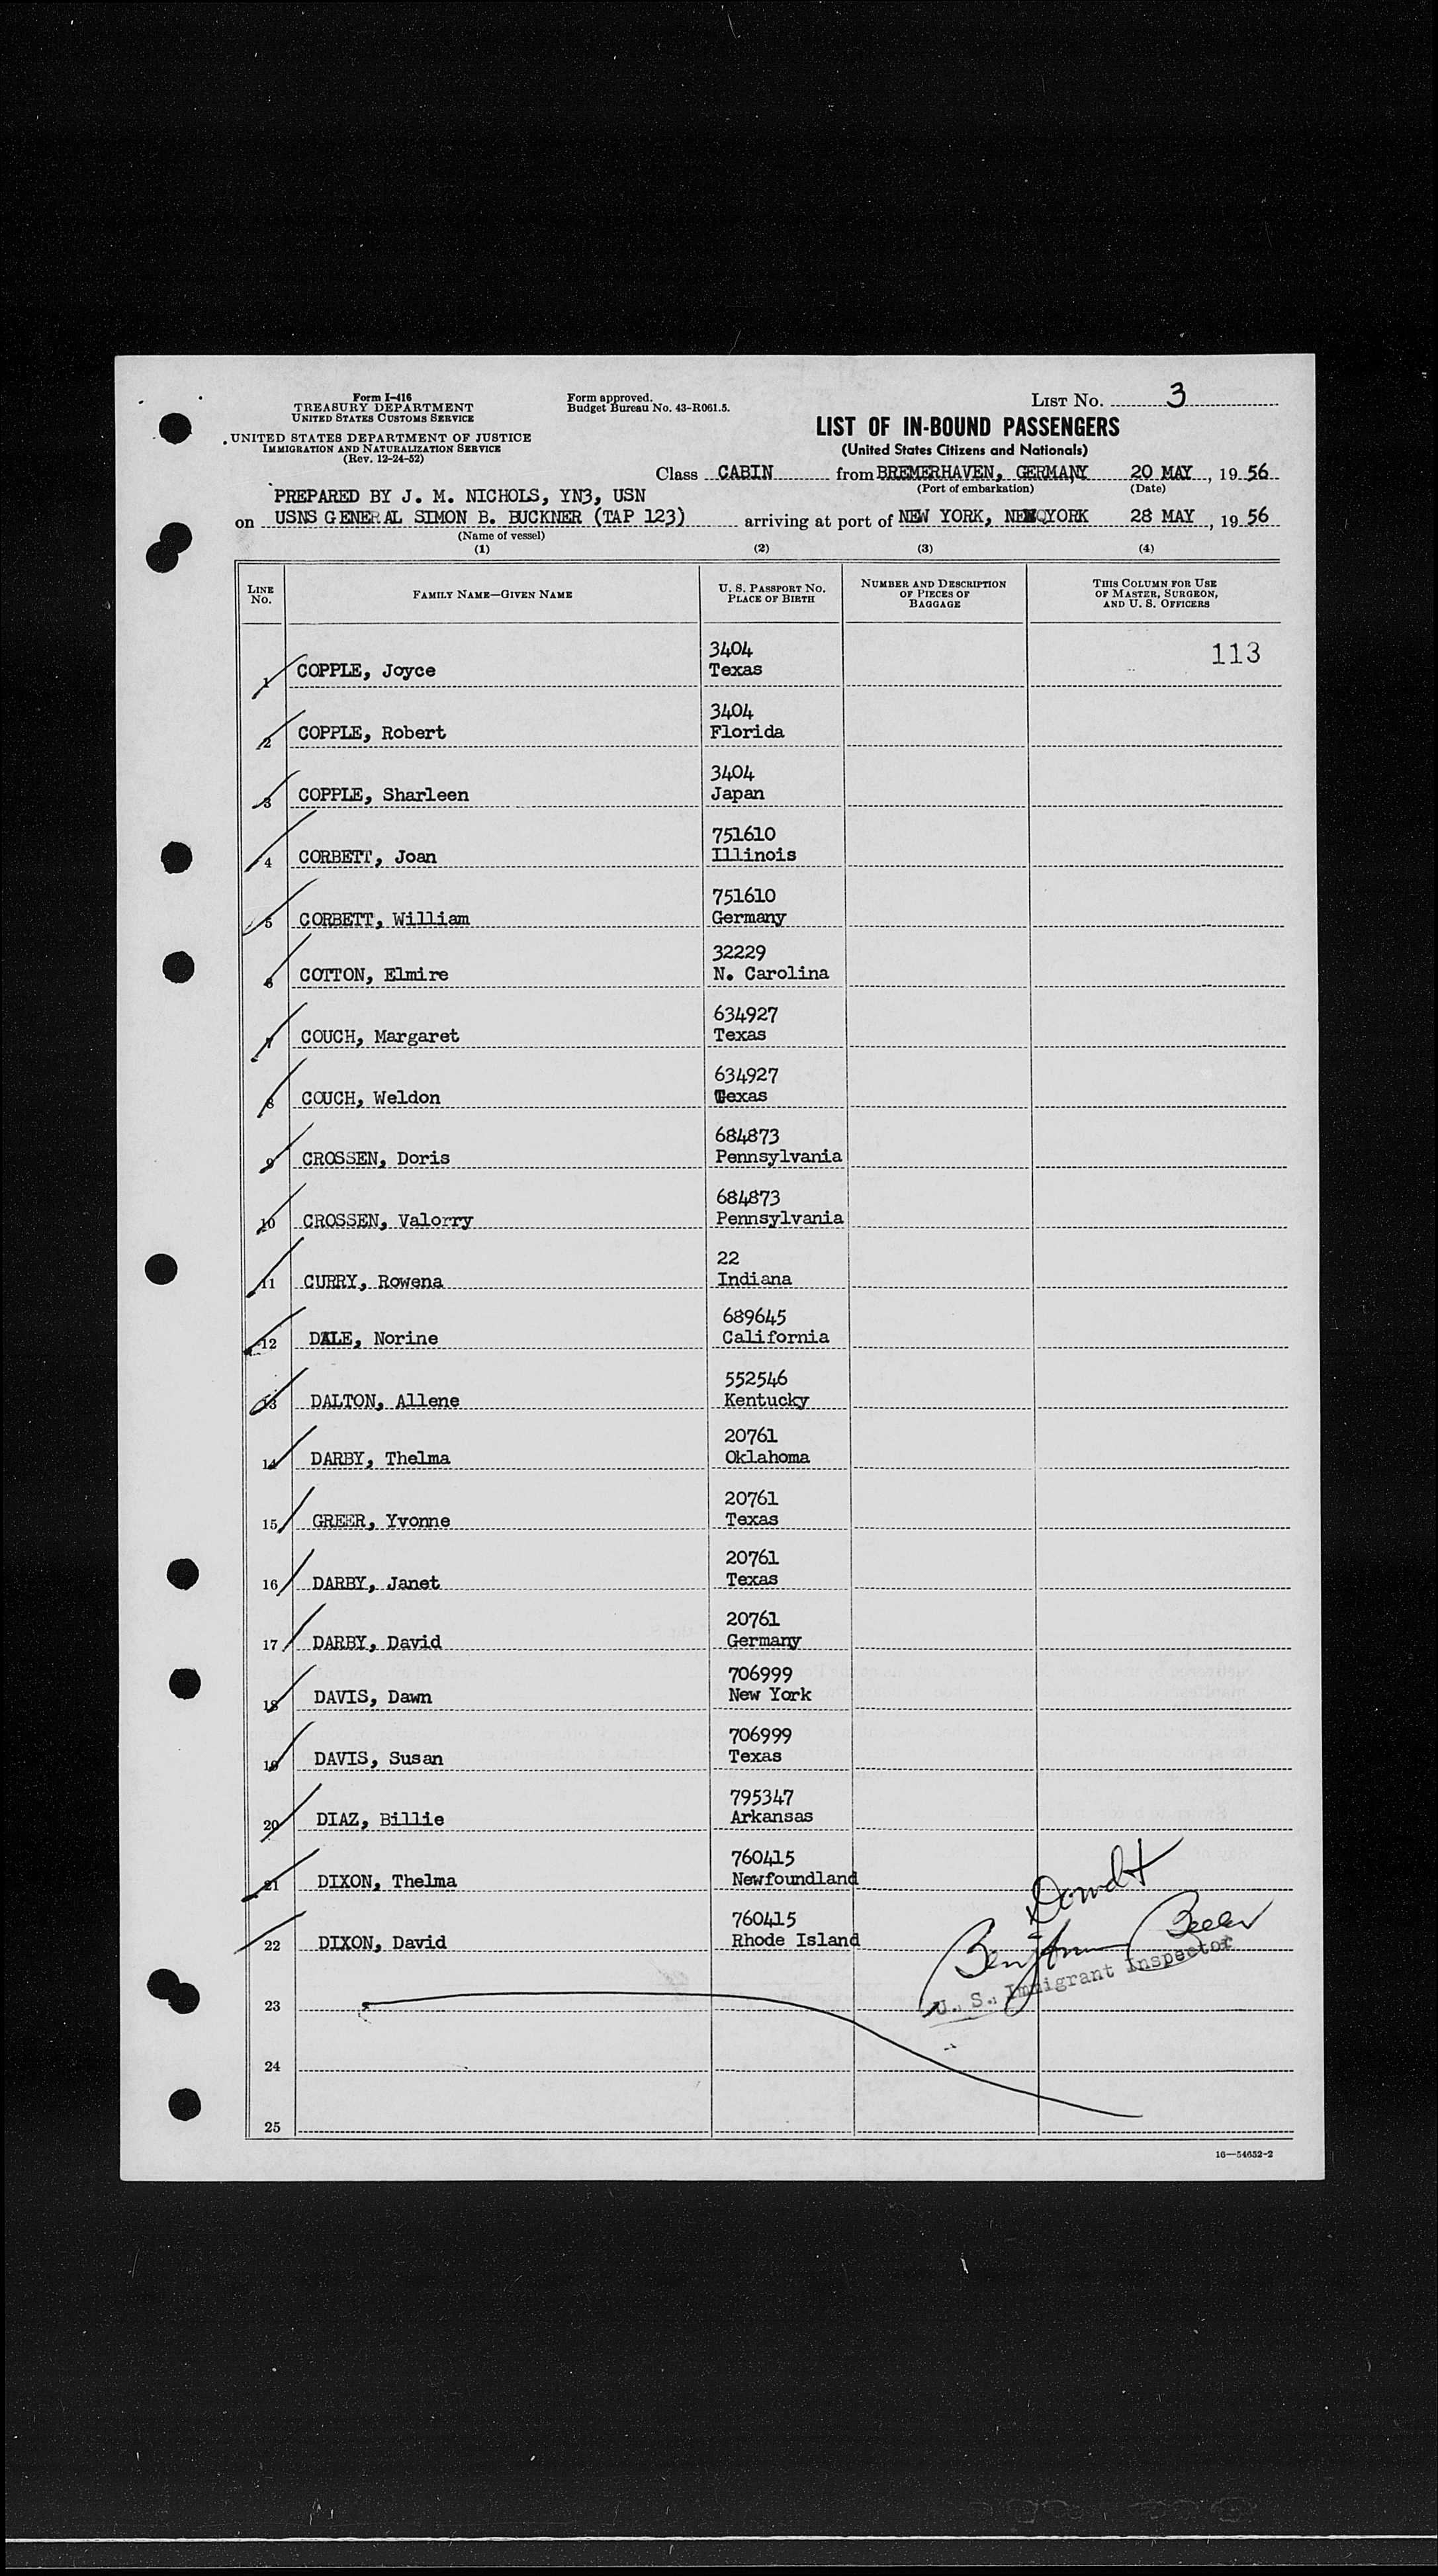 Form I-416
TREASURY DEPARTMENT
UNITED STATES CUSTOMS SERVICE
UNITED STATES DEPARTMENT OF JUSTICE
IMMIGRATION AND NATURALIZATION SERVICE
(Rev. 12-24-52)
Form approved.
Budget Bureau No. 43-R061.5.
LIST No. 3
LIST OF IN-BOUND PASSENGERS
(United States Citizens and Nationals)
Class CABIN from BREMERHAVEN, GERMANY 20 MAY, 19 56
(Port of embarkation) (Date)
PREPARED BY J. M. NICHOLS, YN3, USN
on USNS GENERAL SIMON B. BUCKNER (TAP 123) arriving at port of NEW YORK, NEW YORK 28 MAY, 19 56
(Name of vessel)
(1) (2) (3) (4)
LINE No. FAMILY NAME—GIVEN NAME U. S. PASSPORT No. PLACE OF BIRTH NUMBER AND DESCRIPTION OF PIECES OF BAGGAGE THIS COLUMN FOR USE OF MASTER, SURGEON, AND U. S. OFFICERS
3404 113
1 COPPLE, Joyce Texas
3404
2 COPPLE, Robert Florida
3404
3 COPPLE, Sharleen Japan
751610
4 CORBETT, Joan Illinois
751610
5 CORBETT, William Germany
32229
6 COTTON, Elmire N. Carolina
634927
7 COUCH, Margaret Texas
634927
8 COUCH, Weldon Texas
684873
9 CROSSEN, Doris Pennsylvania
684873
10 CROSSEN, Valorry Pennsylvania
22
11 CURRY, Rowena Indiana
689645
12 DALE, Norine California
552546
13 DALTON, Allene Kentucky
20761
14 DARBY, Thelma Oklahoma
20761
15 GREER, Yvonne Texas
20761
16 DARBY, Janet Texas
20761
17 DARBY, David Germany
706999
18 DAVIS, Dawn New York
706999
19 DAVIS, Susan Texas
795347
20 DIAZ, Billie Arkansas
760415
21 DIXON, Thelma Newfoundland
760415
22 DIXON, David Rhode Island
U. S. Immigrant Inspector
23
24
25
16—54652-2